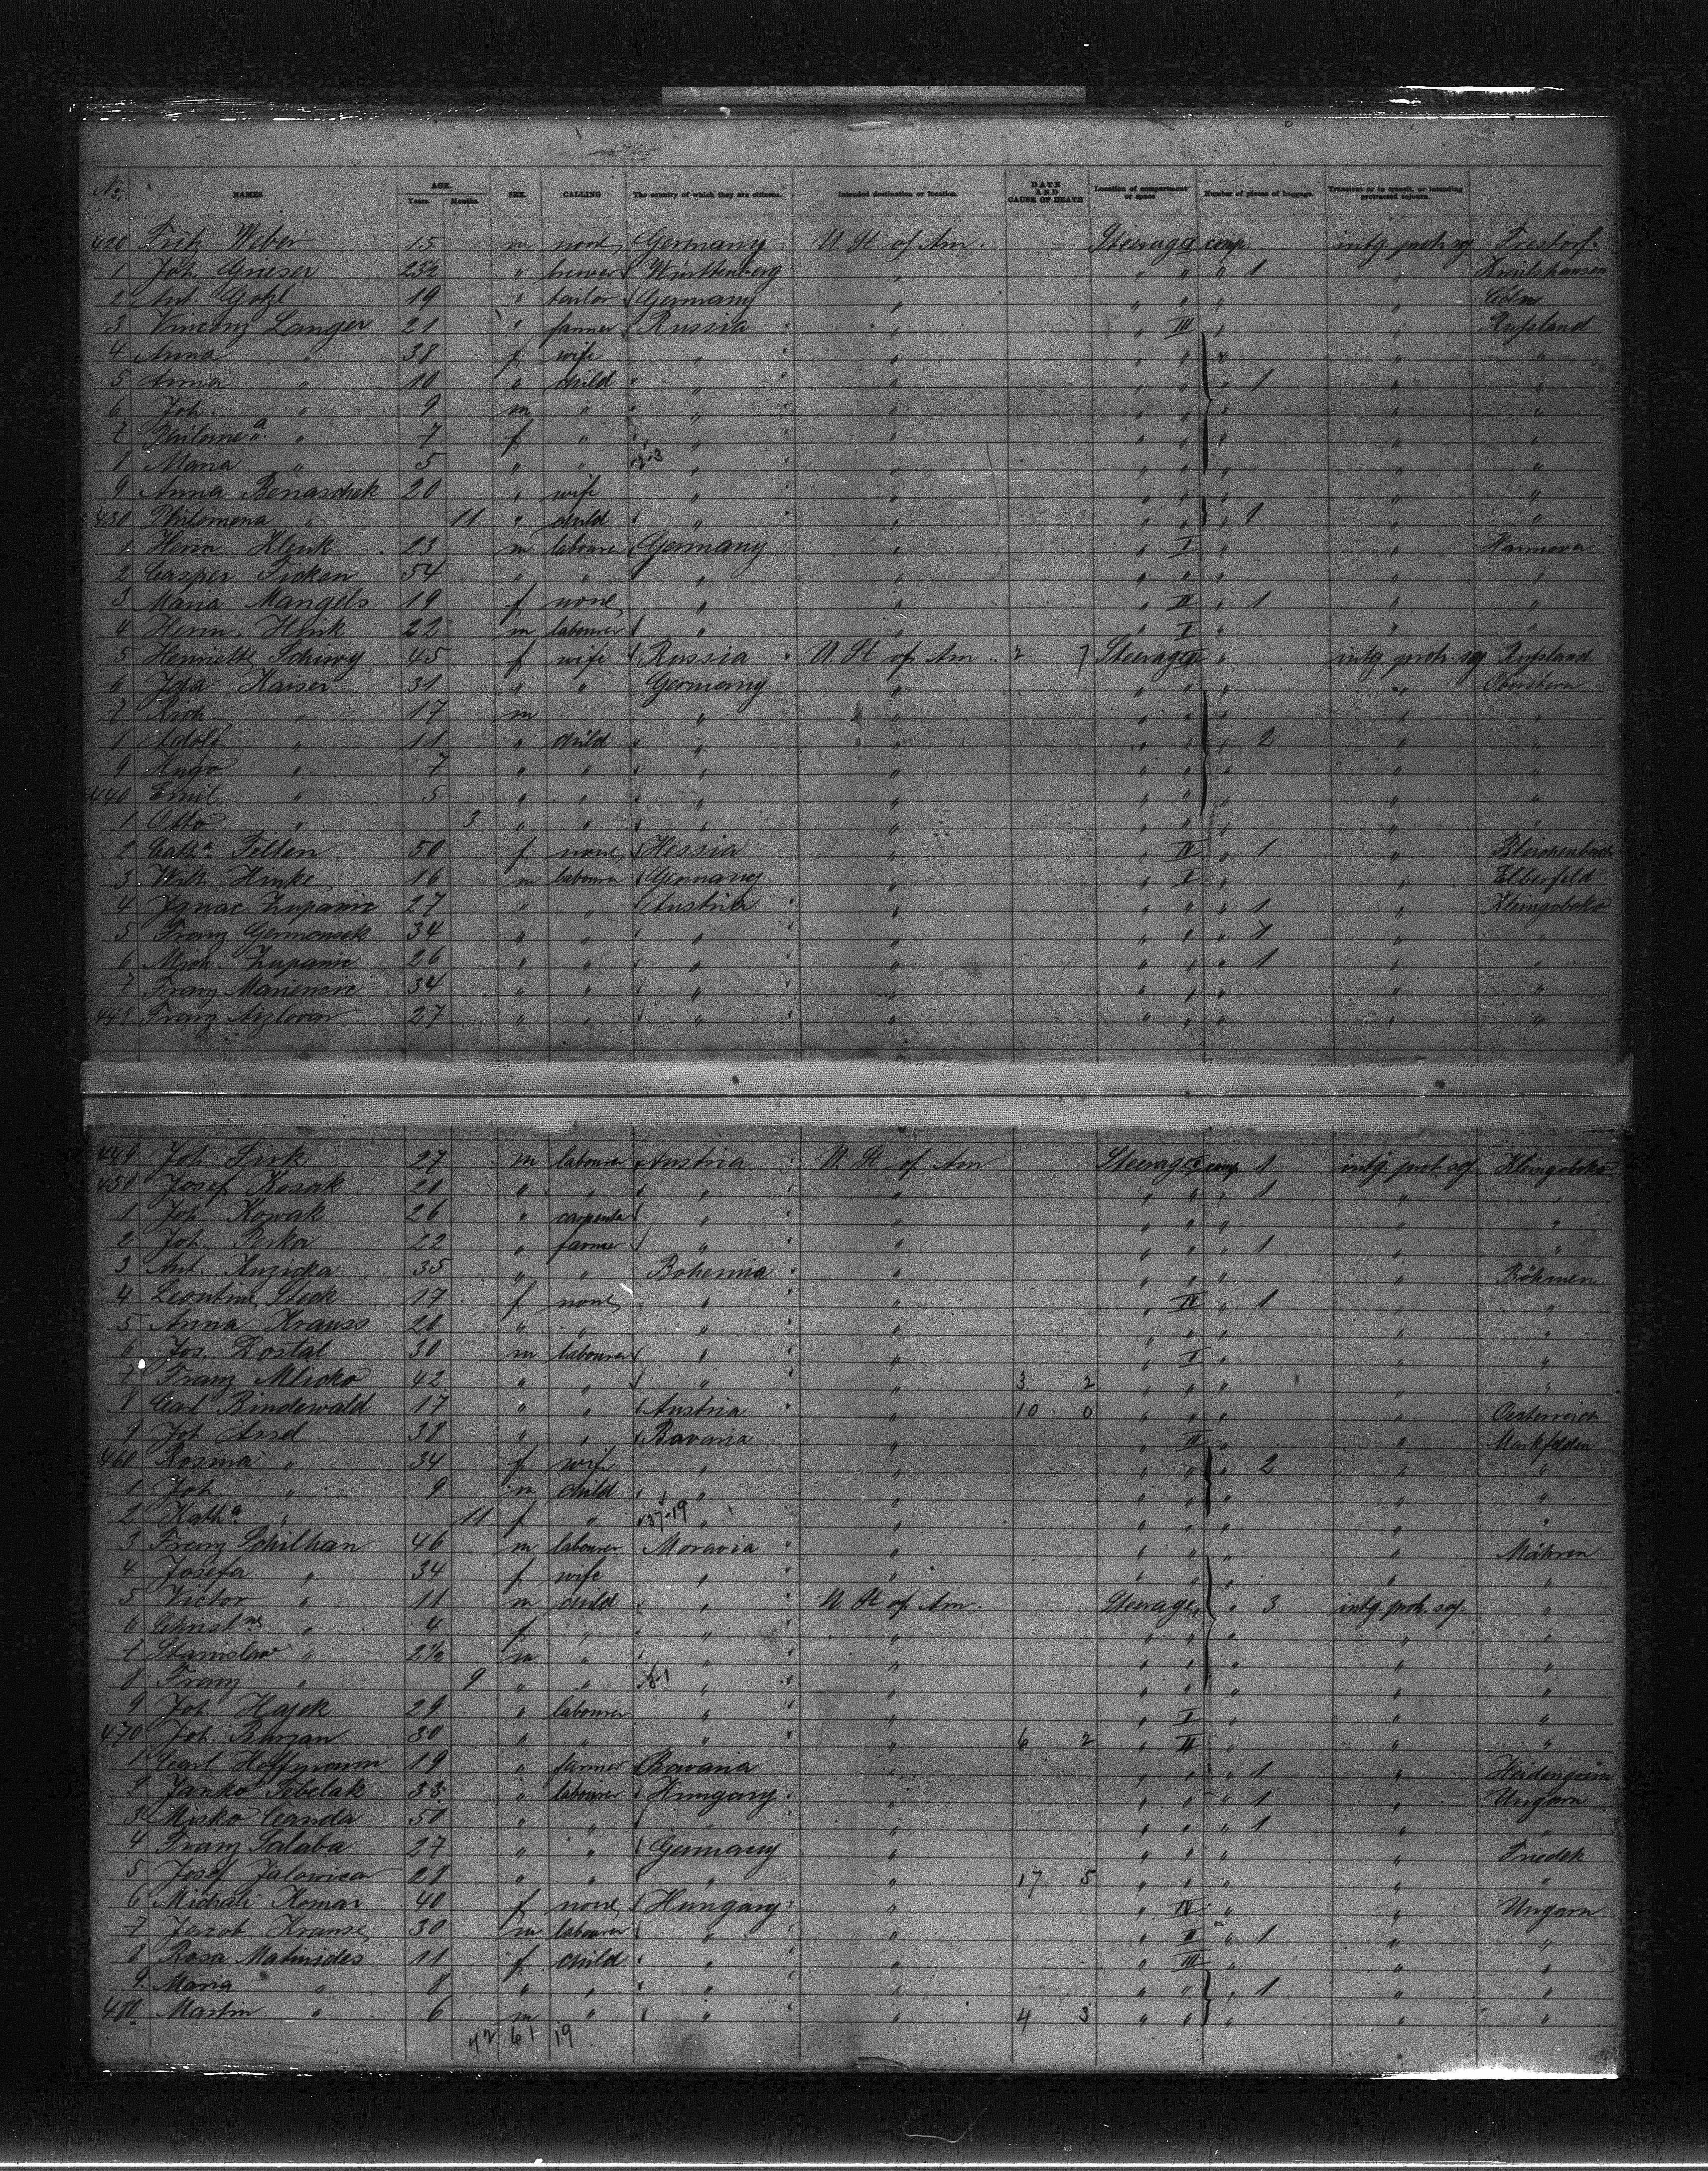 No. NAMES AGE. Years. Months. SEX. CALLING The country of which they are citizens. Intended destination or location. DATE AND CAUSE OF DEATH Location of compartment or space Number of pieces of baggage. Transient or in transit, or intending protracted sojourn.
420 Fritz Weber 15 m none Germany U. St of Am. Steerage comp. intg. protr. soj.
1 Joh. Grieser 25½ " brewer Württemberg " " " " 1 " Krailshausen
2 Ant. Gotzl 19 " tailor Germany " " " " " Cöln
3 Vincenz Langer 21 " farmer Russia " " III " " Russland
4 Anna " 38 f wife " " " " " " "
5 Anna " 10 " child " " " " " 1 " "
6 Joh. " 9 m " " " " " " " "
7 Philomena " 7 f " " " " " " " "
8 Maria " 5 " " 2-3 " " " " " " "
9 Anna Benaschek 20 " wife " " " " " " "
430 Philomena " 11 " child " " " " " 1 " "
1 Herm. Klenk 23 m labourer Germany " " I " " Hannover
2 Casper Ficken 54 " " " " " " " " "
3 Maria Mangels 19 f none " " " IV " 1 " "
4 Herm. Hink 22 m labourer " " " I " " "
5 Henriette Schiwy 45 f wife Russia U. St of Am. 2 7 Steerage " intg. protr. soj Russland
6 Ida Kaiser 31 " " Germany " " " " "
7 Rich. " 17 m " " " " " " "
8 Adolf " 11 " child " " " " " 2 " "
9 Hugo " 7 " " " " " " " " "
440 Emil " 5 " " " " " " " " "
1 Otto " 3 " " " " " " " " "
2 Catha. Felten 50 f none Hessia " " IV " 1 " Bleichenbach
3 Wilh Hinke 16 m labourer Germany " " I " " Elberfeld
4 Ignac Zupanic 27 " " Austria " " " " 1 "
5 Franz Germonsek 34 " " " " " " " 1 " "
6 Mich. Zupanic 26 " " " " " " " 1 " "
7 Franz 34 " " " " " " " " "
448 Franz 27 " " " " " " " " "
449 Joh. Sirk 27 m labourer Austria U. St of Am Steerage comp 1 intg. protr. soj
450 Josef Kosak 21 " " " " " " " 1 " "
1 Joh. Kowak 26 " carpenter " " " " " " "
2 Joh. Perka 22 " farmer " " " " " 1 " "
3 Ant. Kuzicka 35 " " Bohemia " " " " " Böhmen
4 Leontine Steck 17 f none " " " IV " 1 " "
5 Anna Krauss 20 " " " " " " " " "
6 Jos. Dostal 30 m labourer " " " I " " "
7 Franz Mlicko 42 " " " " 3 2 " " " " "
8 Carl Bindewald 17 " " Austria " 10 0 " " " " Oesterreich
9 Joh. Assel 38 " " Bavaria " " III " "
460 Rosina " 34 f wife " " " " " 2 " "
1 Joh " 9 m child " " " " " " "
2 Katha. " 11 f " 37-19 " " " " " " "
3 Franz Schilhan 46 m labourer Moravia " " " " " Mähren
4 Josefa " 34 f wife " " " " " " "
5 Victor " 11 m child " U. St of Am. Steerage " 3 intg. protr. soj. "
6 Christne " 4 f " " " " " " " "
7 Stanislaw " 2½ m " " " " " " " "
8 Franz " 9 " " 8-1 " " " " " " "
9 Joh. Hajek 29 " labourer " " " I " " "
470 Joh. Burzan 30 " " " " 6 2 " II " " "
1 Carl Hoffmann 19 " farmer Bavaria " " " " 1 "
2 Janko Tebelak 33 " labourer Hungary " " " " 1 " Ungarn
3 Misko Canda 50 " " " " " " " 1 " "
4 Franz Salaba 27 " " Germany " " " " " Friedek
5 Josef Jalowica 28 " " " " 17 5 " " " " "
6 Michali Komar 40 f none Hungary " " IV " " Ungarn
7 Jacob Krause 30 m labourer " " " II " 1 " "
8 Rosa Matinides 11 f child " " " III " " "
9 Maria " 8 " " " " " " " 1 " "
480 Martin " 6 m " " " 4 3 " " " " "
42 61 19